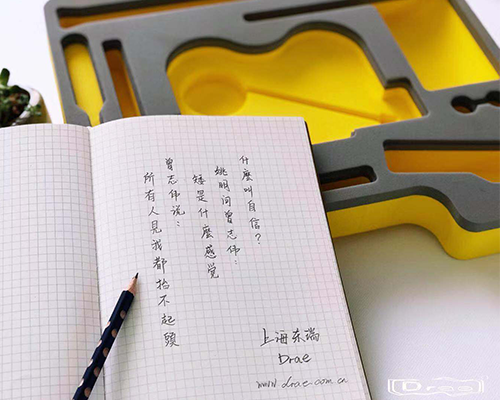 什麼叫自信？
姚明问曾志伟：
矮是什麼感觉
曾志伟说：
所有人見我都抬不起頭
上海东端
Drae
www.drae.com.cn
Drae